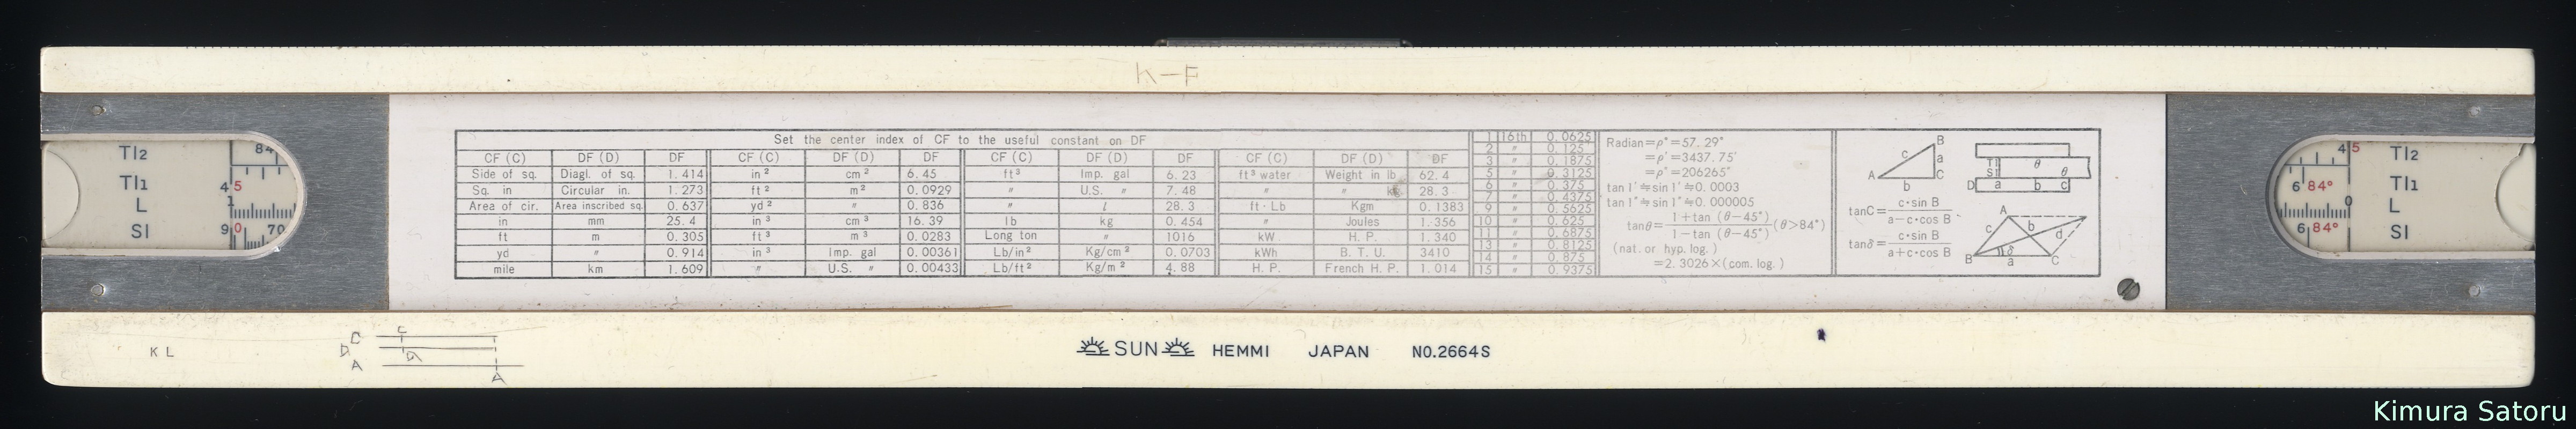 K-F
Tl2
Tl1
L
Sl
84
45
1
90 70
Set the center index of CF to the useful constant on DF
CF (C) DF (D) DF CF (C) DF (D) DF CF (C) DF (D) DF CF (C) DF (D) DF
Side of sq. Diagl. of sq. 1.414 in² cm² 6.45 ft³ Imp. gal 6.23 ft³ water Weight in lb 62.4
Sq. in Circular in. 1.273 ft² m² 0.0929 〃 U.S. 〃 7.48 〃 〃 kg 28.3
Area of cir. Area inscribed sq. 0.637 yd² 〃 0.836 〃 l 28.3 ft·Lb Kgm 0.1383
in mm 25.4 in³ cm³ 16.39 lb kg 0.454 〃 Joules 1.356
ft m 0.305 ft³ m³ 0.0283 Long ton 〃 1016 kW H. P. 1.340
yd 〃 0.914 in³ Imp. gal 0.00361 Lb/in² Kg/cm² 0.0703 kWh B. T. U. 3410
mile km 1.609 〃 U.S. 〃 0.00433 Lb/ft² Kg/m² 4.88 H. P. French H. P. 1.014
1 16th 0.0625
2 〃 0.125
3 〃 0.1875
5 〃 0.3125
6 〃 0.375
7 〃 0.4375
9 〃 0.5625
10 〃 0.625
11 〃 0.6875
13 〃 0.8125
14 〃 0.875
15 〃 0.9375
Radian=ρ°=57.29°
=ρ'=3437.75'
=ρ"=206265"
tan 1'≒sin 1'≒0.0003
tan 1"≒sin 1"≒0.000005
tanθ=1+tan (θ-45°)/1-tan (θ-45°) (θ>84°)
(nat. or hyp. log.)
=2.3026×(com. log.)
A B C a b c
T1 θ
S1 θ
D a b c
tanC=c·sin B/a-c·cos B
tanδ=c·sin B/a+c·cos B
A B C a b c d δ
45
6 84°
0
6 84°
Tl2
Tl1
L
Sl
KL
C C
D D
A A
SUN HEMMI JAPAN NO.2664S
Kimura Satoru